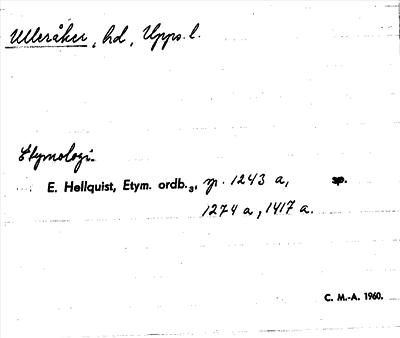 Ulleråker, hd, Upps. l.
Etymologi.
E. Hellquist, Etym. ordb.3, sp. 1243 a, sp.
1274 a, 1417 a.
C. M.-A. 1960.